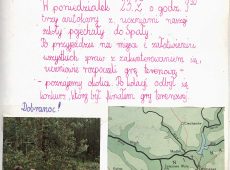 W poniedziałek 23.2 o godz. 9³⁰
trzy autokary z uczniami naszej
szkoły pojechały do Spały.
Po przyjeździe na miejsce i załatwieniu
wszystkich spraw z zakwaterowaniem się,
uczniowie rozpoczęli grę terenową -
- poznajemy okolice. Po kolacji odbył się
konkurs, który był finałem gry terenowej.
Dobranoc!